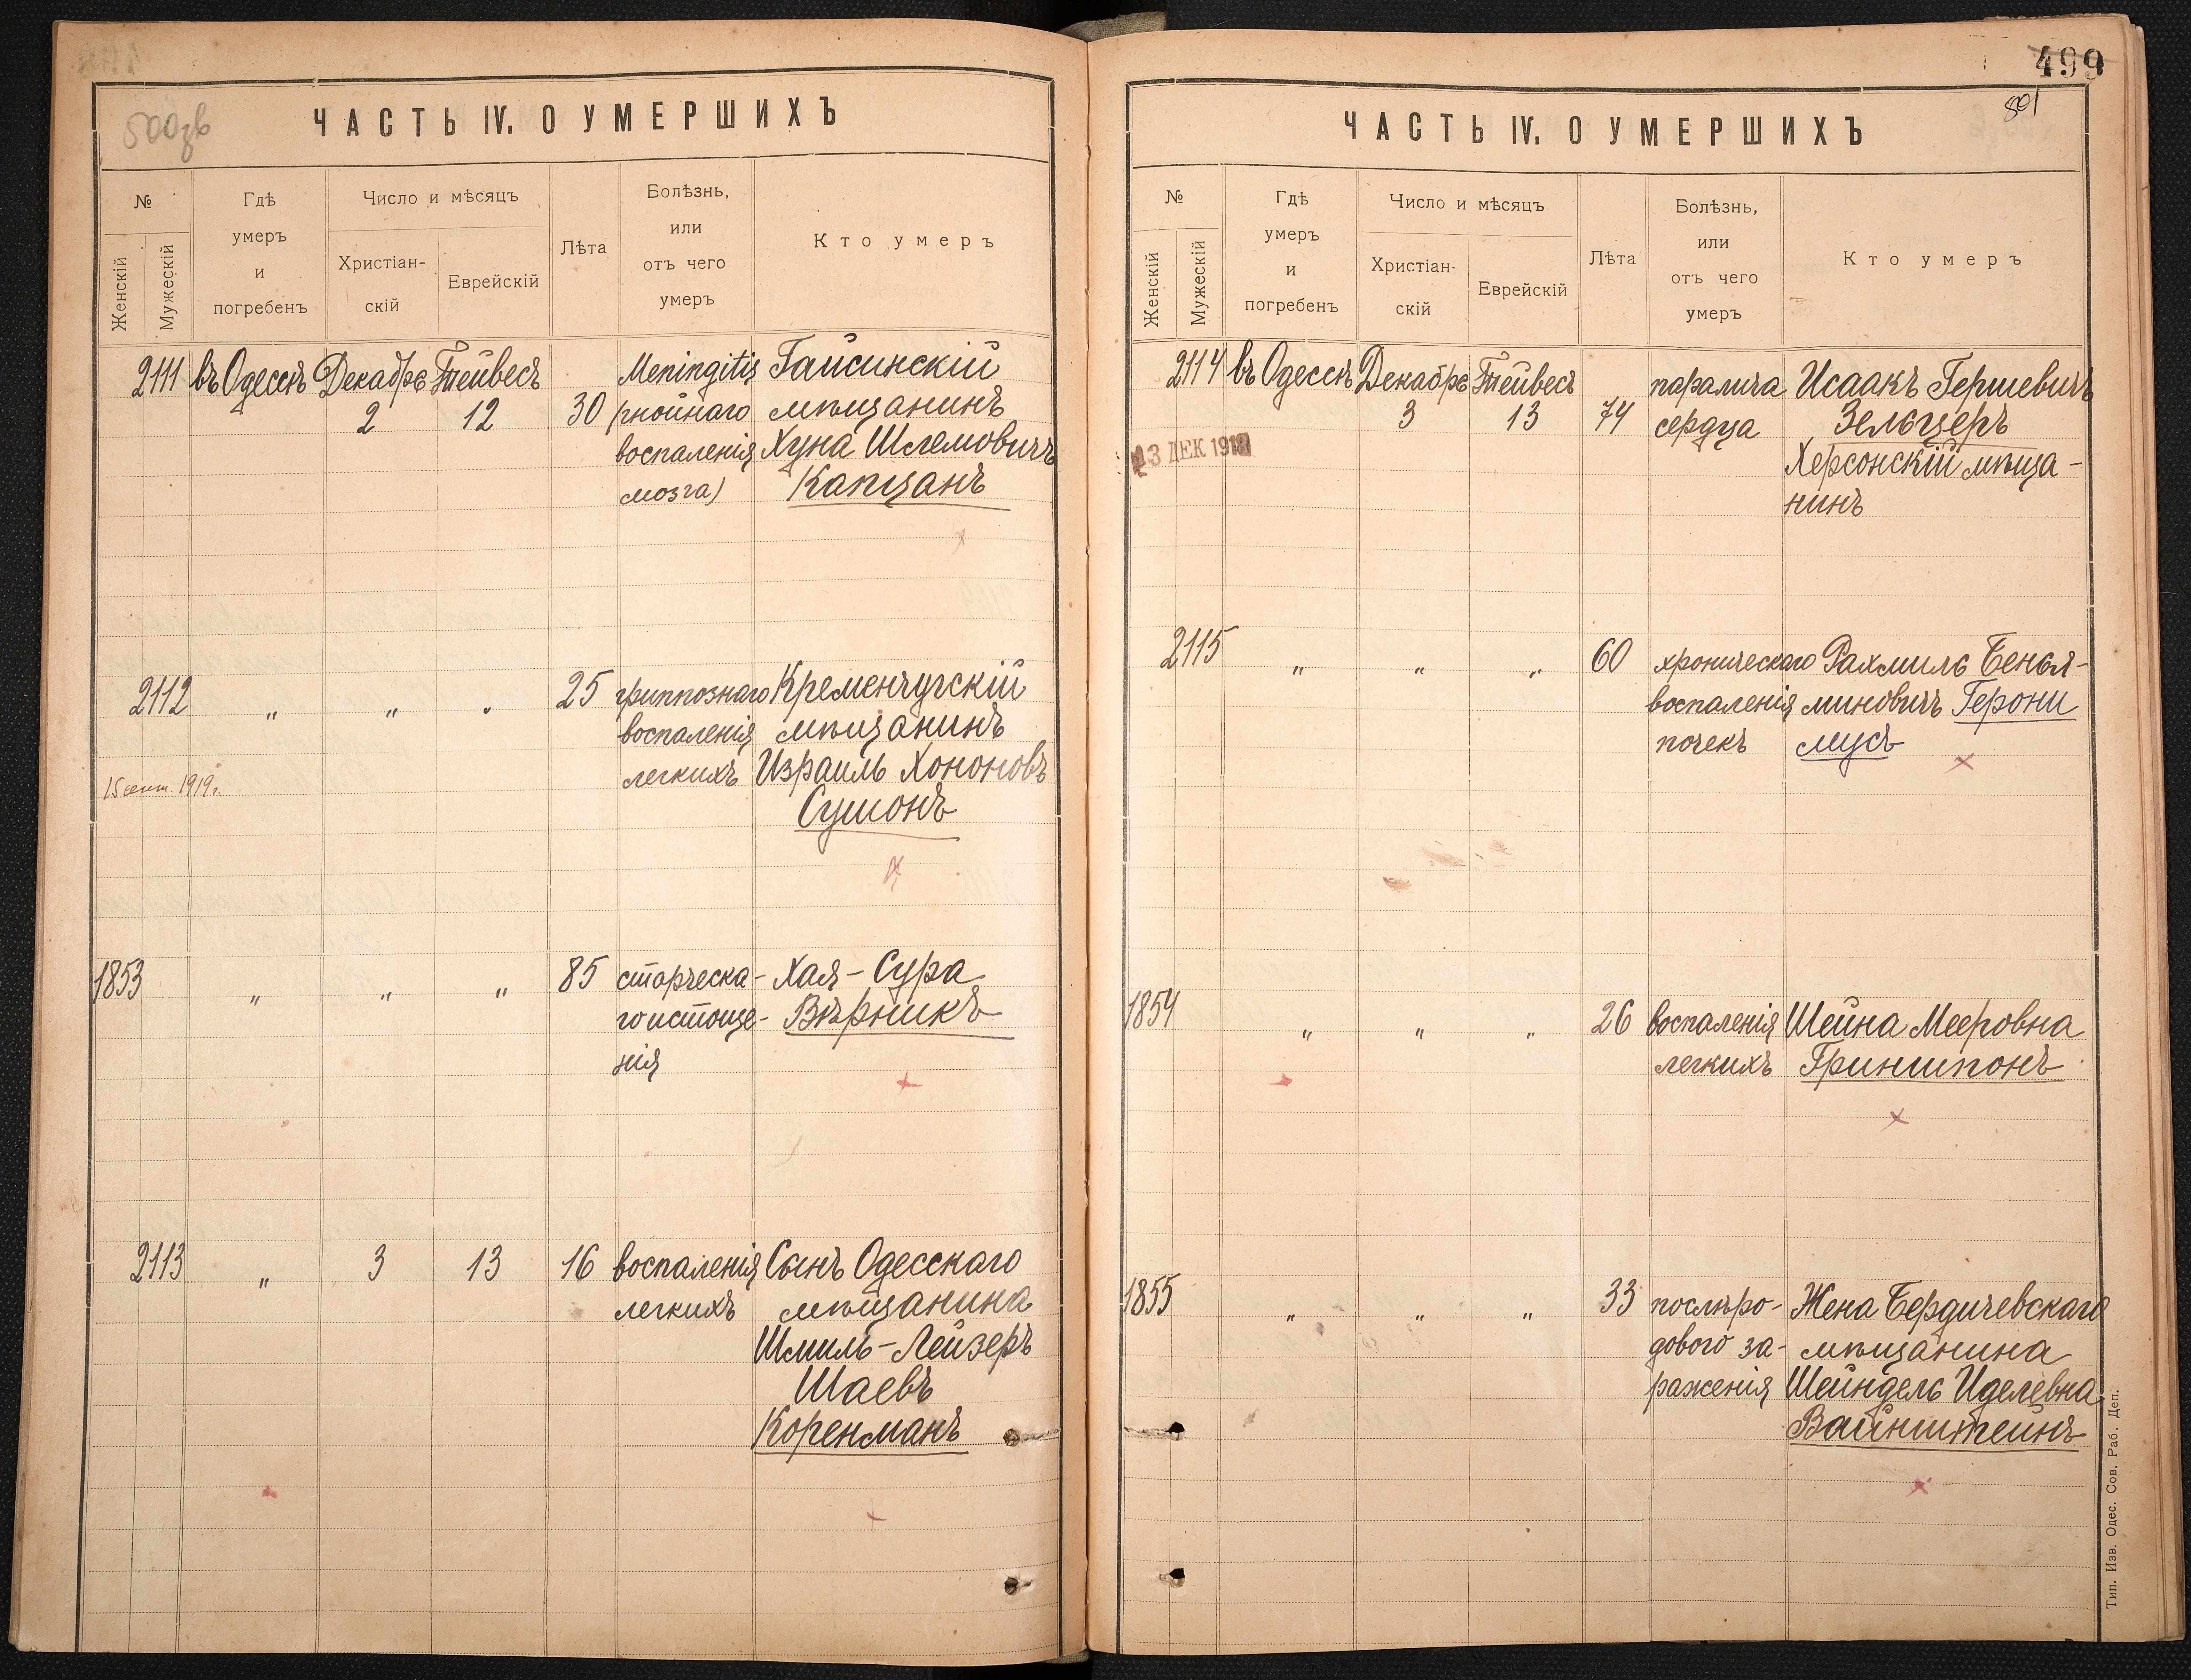 500зв
ЧАСТЬ IV. О УМЕРШИХЪ
№
Женскій
Мужескій
Гдѣ
умеръ
и
погребенъ
Число и мѣсяцъ
Христіан-
скій
Еврейскій
Лѣта
Болѣзнь,
или
отъ чего
умеръ
Кто умеръ
2111 въ Одессѣ Декабрь Тейвесъ Meningitis Гайсинскій
2 12 30 (гнойнаго мѣщанинъ
воспаленія Хуна Шлемовичъ
мозга) Капцанъ
2112 " " " 25 гриппознаго Кременчугскій
воспаленія мѣщанинъ
легкихъ Израиль Хононовъ
15 сент. 1919г.
Сушонъ
1853 " " " 85 старческа- Хая-Сура
го истоще- Вѣрникъ
нія
2113 " 3 13 16 воспаленія Сынъ Одесскаго
легкихъ мѣщанина
Шмиль-Лейзеръ
Шаевъ
Коренманъ
499
501
ЧАСТЬ IV. О УМЕРШИХЪ
№
Женскій
Мужескій
Гдѣ
умеръ
и
погребенъ
Число и мѣсяцъ
Христіан-
скій
Еврейскій
Лѣта
Болѣзнь,
или
отъ чего
умеръ
Кто умеръ
2114 въ Одессѣ Декабрь Тейвесъ паралича Исаакъ Гершевичъ
3 13 74 сердца Зельцеръ
23 ДЕК 1918
Херсонскій мѣща-
нинъ
2115 " " " 60 хроническаго Рахмиль Бенья-
воспаленія миновичъ Герони
почекъ мусъ
1854 " " " 26 воспаленія Шейна Мееровна
легкихъ Гриншпонъ
1855 " " " 33 послѣро- Жена Бердичевскаго
дового за- мѣщанина
раженія Шейндель Иделевна
Вайнштейнъ
Тип. Изв. Одес. Сов. Раб. Деп.